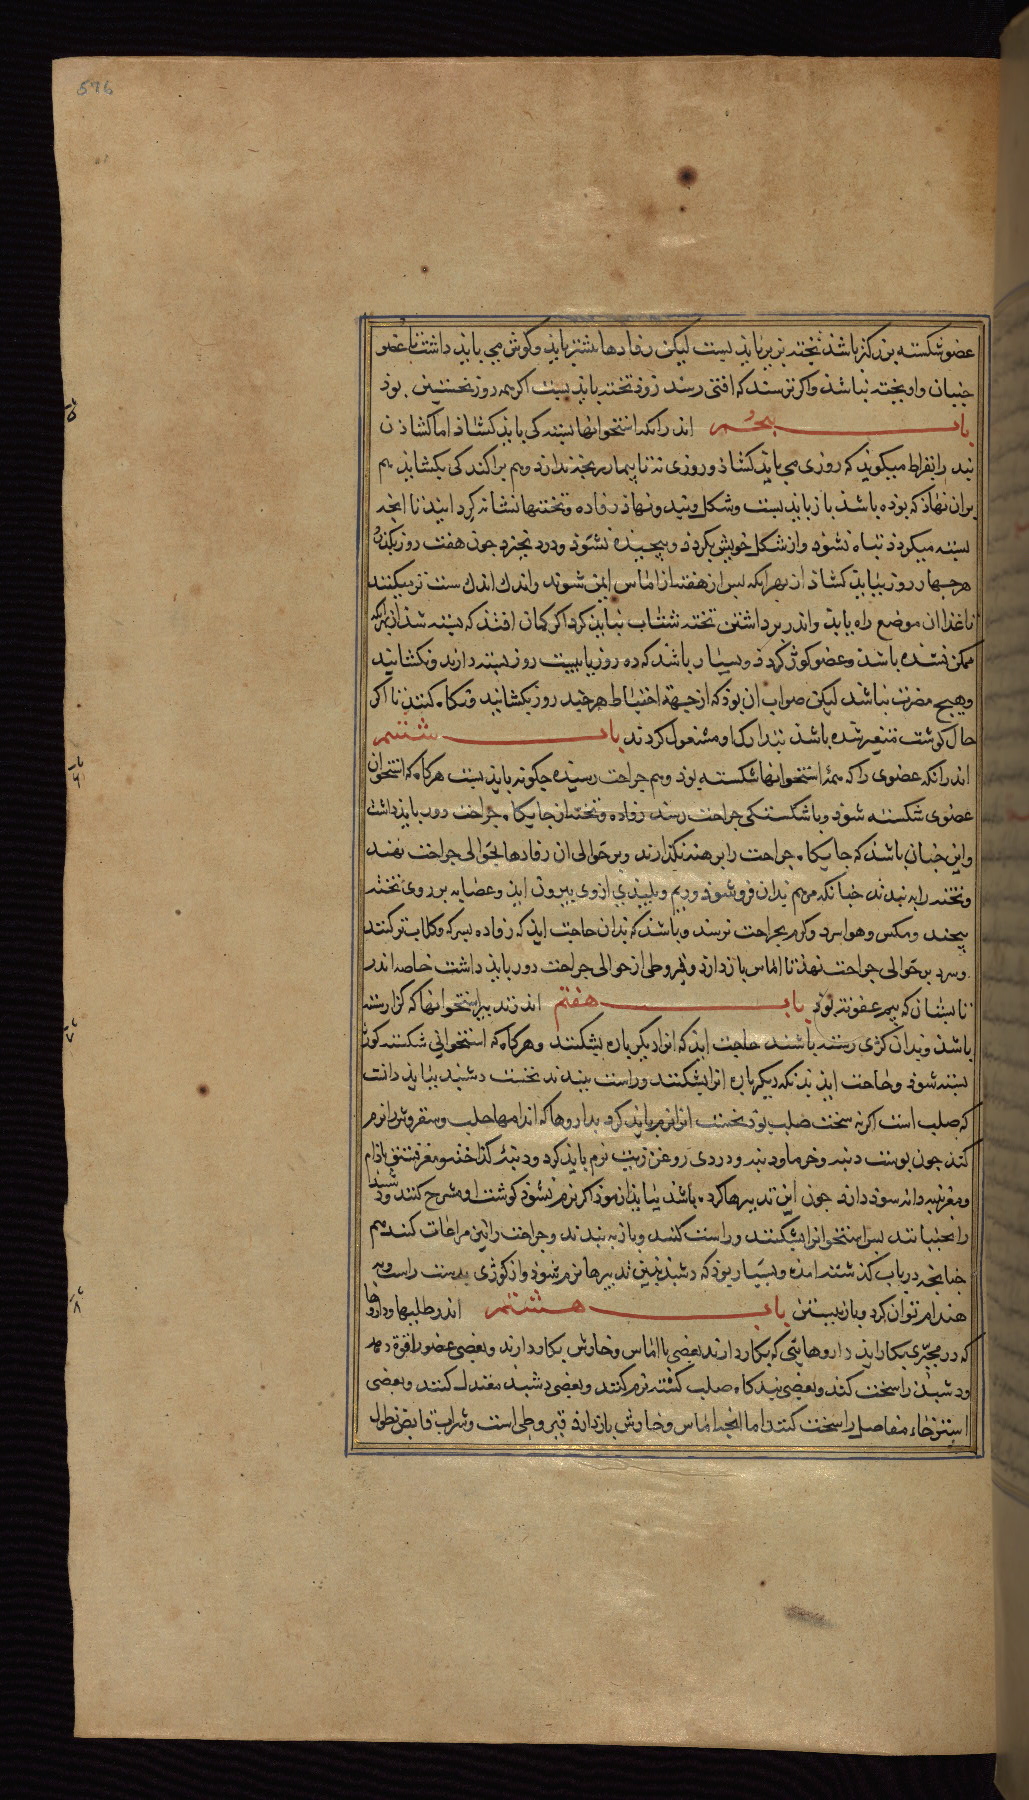 576
عضو شکسته بزرکتر باشذ تخته بزیر باید بست لیکن رفادها بیشتر باید وکوش می باید داشت تا عضو
جنبان واویخته نباشذ واکر ترسند که افتی رسد زوذ تخته باید بست اکرچه روز نخستین بوذ
باب پنجم اندر انکه استخوانها بسته کی باید کشاذ اما کشاذن
بند را بقراط میکوید که روزی می باید کشاذ وروزی نه تا بیمار رنجه ندارد وهم براکند کی بکشاید هم
بران نهاذ که بوذه باشذ باز باید بست وشکل وبند ونهاذ رفاده وتختها نشانه کردانید تا انجه
بسته میکردذ تباه نشوذ واز شکل خویش نکردذ وپیچیده نشوذ ودرد نخیزد جون هفت روز بکذرد
هر جهار روز بباید کشاذ از بهر انکه بس از هفته از اماس ایمن شوند واندک اندک سست تر میکنند
تا غذا ان موضع راه یابد واندر برداشتن تخته شتاب نباید کرد اکر کمان افتذ که بسته شد از بهر انکه
ممکن نشده باشذ وعضو کوژ کردذ وبسیار باشذ که ده روز یا بیست روز بسته دارند ونکشایند
وهیچ مضرت نباشذ لیکن صواب ان بوذ که از جهة احتیاط هر جند روز بکشایند ونکاه کنند تا اکر
حال کوشت متغیر شده باشذ بتدارک او مشغول کردند باب ششم
اندر انکه عضوی را که همه استخوانها شکسته بوذ وهم جراحت رسیده جکونه باید بست هرکاه که استخوان
عضوی شکسته شوذ وبا شکستکی جراحت رسد رفاده وتخته از جایکاه جراحت دور باید داشت
واین جنان باشذ که جایکاه جراحت را برهنه بکذارند وبر حوالی ان رفادها بحوالی جراحت نهند
وتخته را به بندند جنانکه مرهم بدان فروشوذ وریم وپلیذی ازوی بیرون اید وعصابه بر روی تخته
پیچند ومکس وهوا سرد وکرم بجراحت نرسد وباشذ که بدان حاجت اید که رفاده بسرکه وکلاب تر کنند
وسرد بر حوالی جراحت نهذ تا اماس بازدارد وقیروطی از حوالی جراحت دور باید داشت خاصه اندر
تابستان که بیم عفونت بوذ باب هفتم اندر تدبیر استخوانها که کژ رسته
باشذ وبدان کژی رسته باشند حاجت اید که انرا دیکر باره بشکنند وهرکاه که استخوانی شکسته کوژ
بسته شوذ وحاجت اید بدانکه دیکر باره انرا بشکنند وراست ببندند نخست دشبد بباید دانست
که صلب است اکر نه سخت صلب بوذ نخست انرا نرم باید کرد بداروها که اندامها صلب وسقروس را نرم
کند جون پوست دنبه وخرما ودنبه ودردی روغن زیت نرم باید کرد ودنبه کذاخته ومغز فستق باذام
ومغز پنبه دانه سوذ دارد جون این تدبیرها کرده باشذ بباید ازموذ اکر نرم نشوذ کوشت او شرح کنند ودشبد
را بجنبانند بس استخوانرا بشکنند وراست کنند وباز به بندند وجراحت را نیز مراعات کنند هم
جنانجه در باب کذشته امذه وبسیار بوذ که دشبذ بدین تدبیرها نرم شوذ واز کوژی بدست راست وبه
هندام توان کرد وباز ببستن باب هشتم اندر طلیها وداروها
که در مجبری بکار اید داروهایی که بکار دارند بعضی با اماس وخارش بکار دارند وبعضی عضو را قوة دهد
ودشبذ را سخت کند وبعضی بندکاه صلب کشته نرم کنند وبعضی دشبد معتدل کنند وبعضی
استرخاء مفاصل را سخت کنند اما انجه اماس وخارش بازدارد قیروطی است وشراب قابض نطول